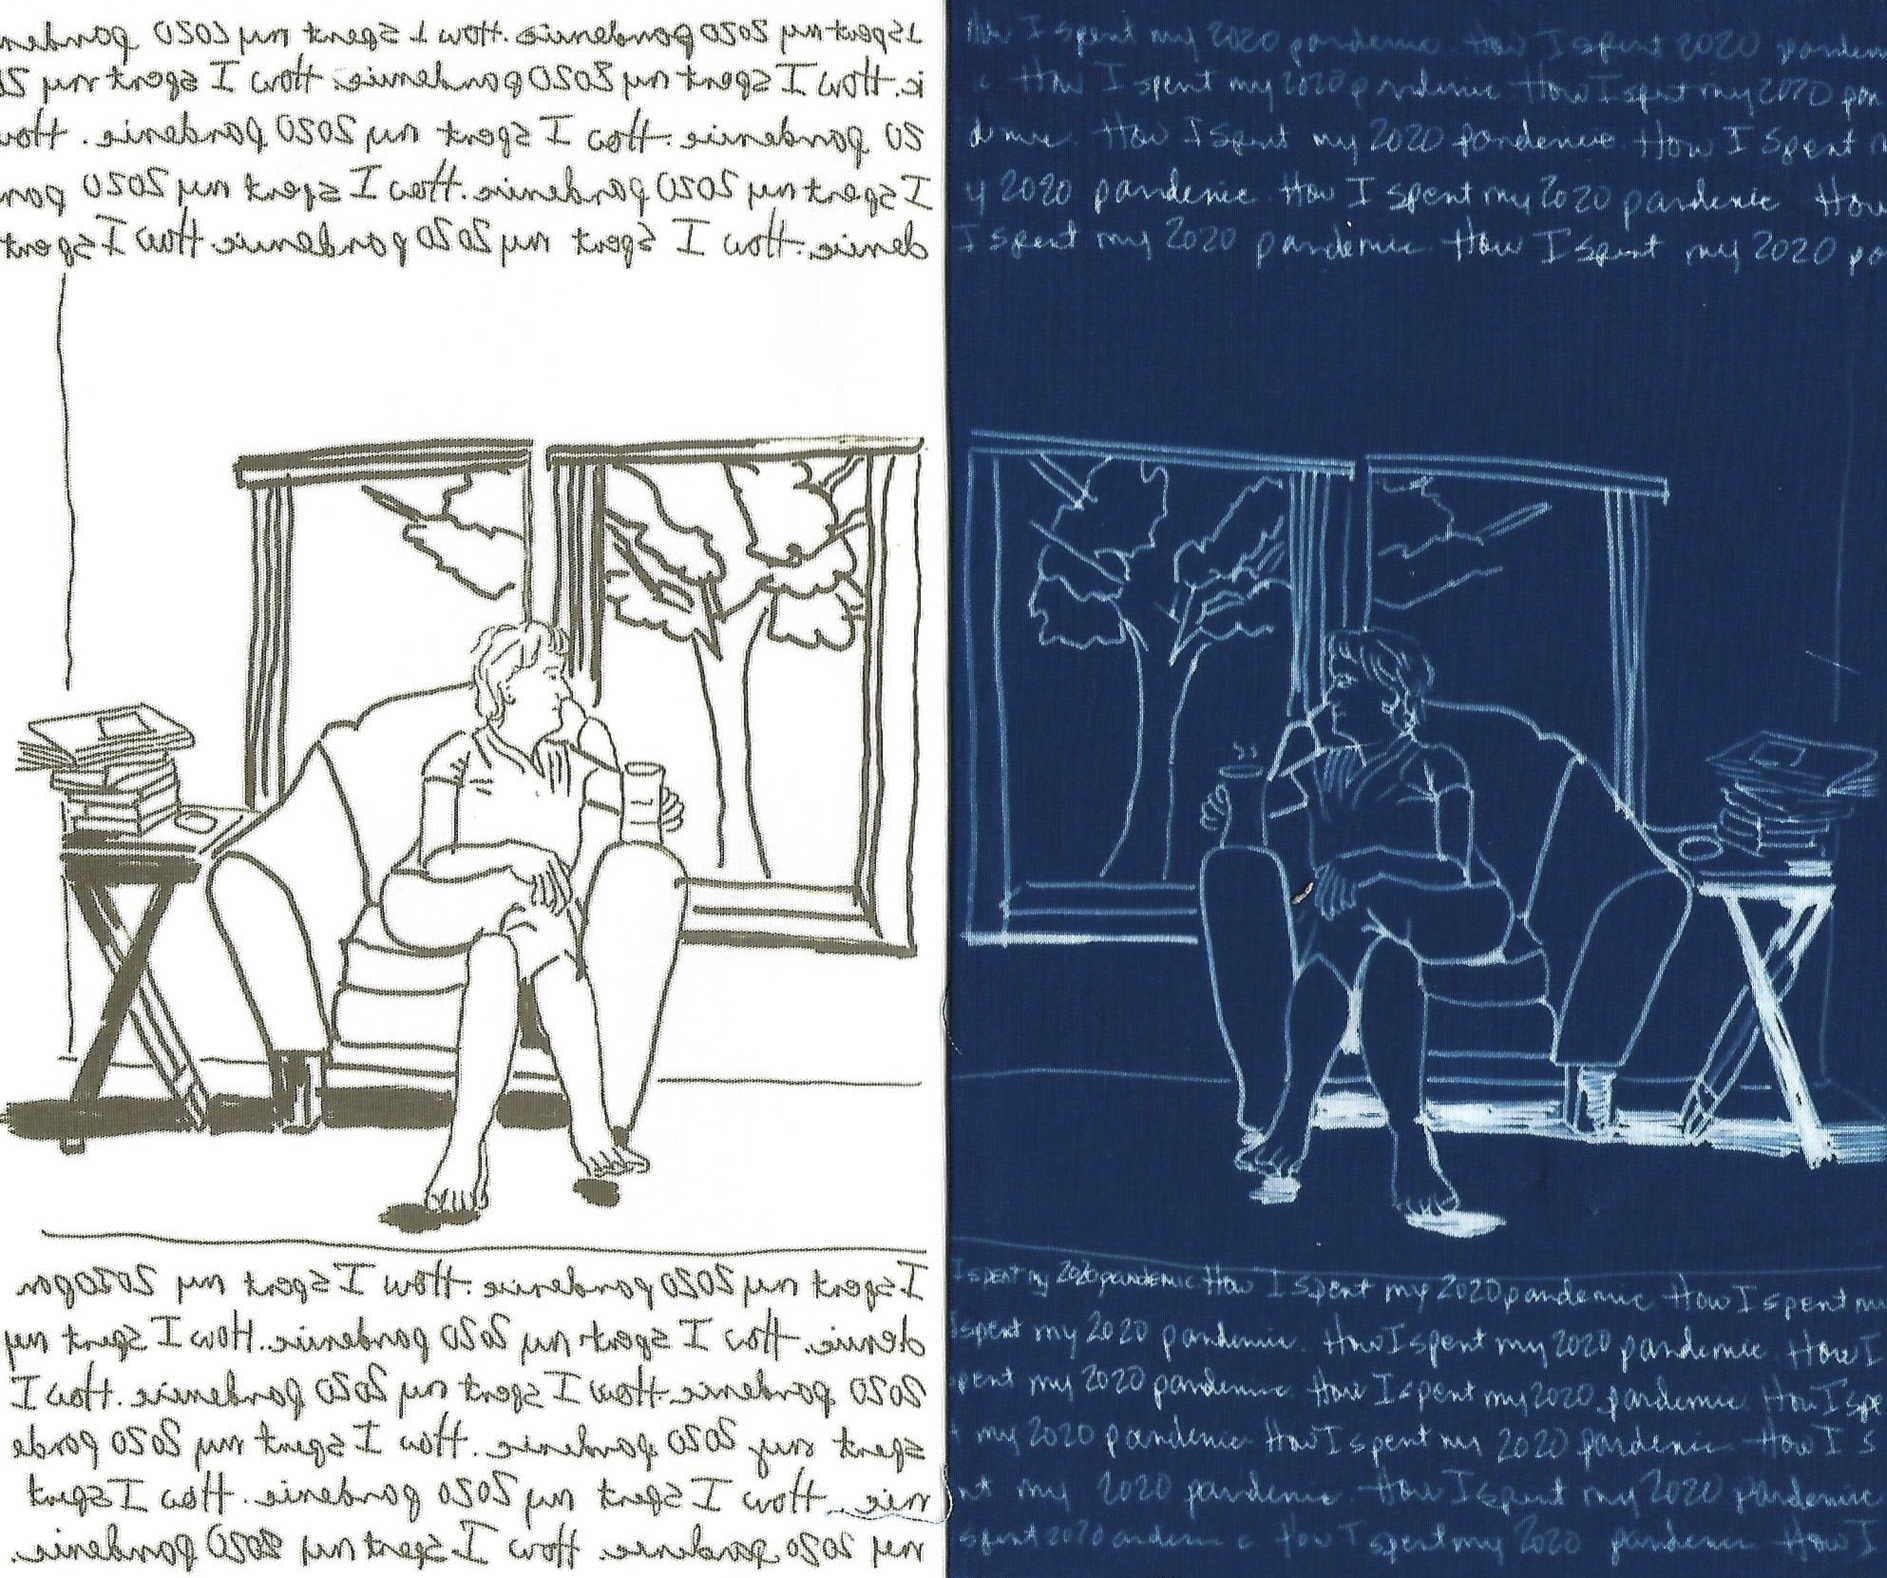 I spent my 2020 pandemic. How I spent my 2020 pandem
ic. How I spent my 2020 pandemic. How I spent my 20
20 pandemic. How I spent my 2020 pandemic. How
I spent my 2020 pandemic. How I spent my 2020 pan
demic. How I spent my 2020 pandemic How I spent
I spent my 2020 pandemic. How I spent my 2020 pan
demic. How I spent my 2020 pandemic. How I spent my
2020 pandemic. How I spent my 2020 pandemic. How I
spent my 2020 pandemic. How I spent my 2020 pande
mic. How I spent my 2020 pandemic. How I spent
my 2020 pandemic. How I spent my 2020 pandemic.
How I spent my 2020 pandemic How I spent 2020 pandem
ic How I spent my 2020 pandemic How I spent my 2020 pan
demic. How I spent my 2020 pandemic. How I spent m
y 2020 pandemic. How I spent my 2020 pandemic How
I spent my 2020 pandemic How I spent my 2020 pa
I spent my 2020 pandemic How I spent my 2020 pandemic How I spent my
spent my 2020 pandemic. How I spent my 2020 pandemic. How I
pent my 2020 pandemic. How I spent my 2020 pandemic. How I spe
t my 2020 pandemic. How I spent my 2020 pandemic How I s
nt my 2020 pandemic How I spent my 2020 pandemic
spent 2020 andemic How I spent my 2020 pandemic How I